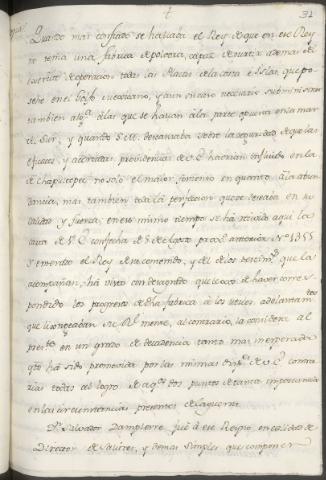 31
Quando mas confiado se hallava el Rey de que en ese Rey
no tenia una fabrica de polvora, capaz de surtir ademas de el
distrito de operacion todas las Plazas de la costa e Yslas que po-
sehe en el Golfo Mexicano, y aun siendo necesario subministrar
tambien alg.ª a las que se hallan a la parte opuesta en la mar
del Sur, y quando S.M. descansava sobre la seguridad de que las
eficaces, y acertadas providencias de V.E. havrian influido en la
de Chapultepec no solo el maior fomento en quanto a la abun
dancia, mas tambien toda la perfeccion que se deseava en su
calidad y fuerza, en ese mismo tiempo se ha recivido aqui la
carta de V.E. con fecha de de Agosto prox.º antecedente N.º 1355
Enterado el Rey de su contenido, y del de los testim.os que la
acompañan, ha visto con desagrado que lexos de haver corres-
pondido los progresos de dha fabrica a los utiles adelantam.tos
que se esperaban su R.l mente, al contrario, la considera al
pres.te en un grado de decadencia tanto mas inesperada
q.to ha sido promovida por las mismas de V.E. contra
rias todas al logro de aq.llos dos puntos de tanta importancia
en las circunstancias presentes de la guerra.
D.n Salvador Dampierre fue a ese Reyno en calidad de
Director de Salitres, y demas simples que componen